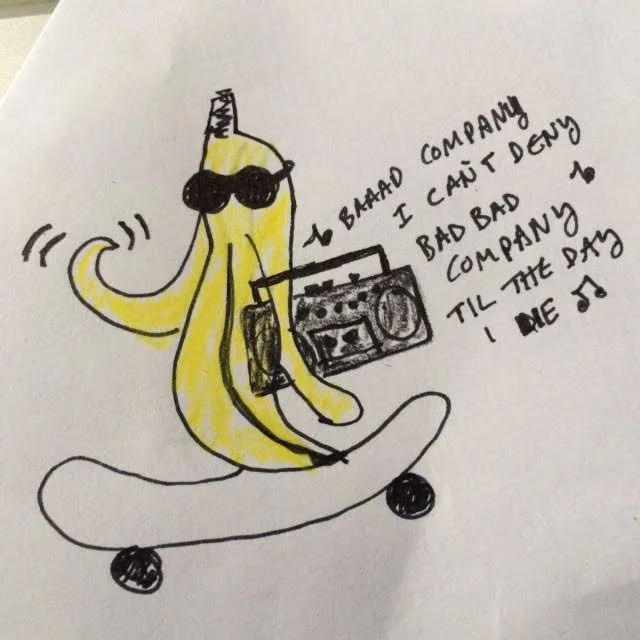 BAAAD COMPANY
I CAN'T DENY
BAD BAD
COMPANY
TIL THE DAY
I DIE